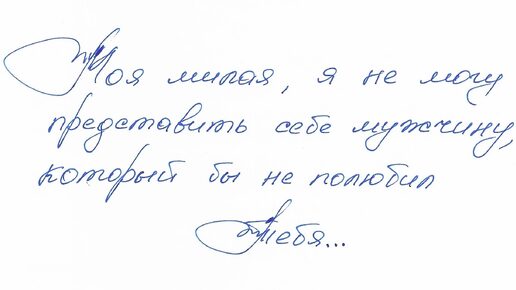 Моя милая, я не могу
представить себе мужчину,
который бы не полюбил
Тебя...